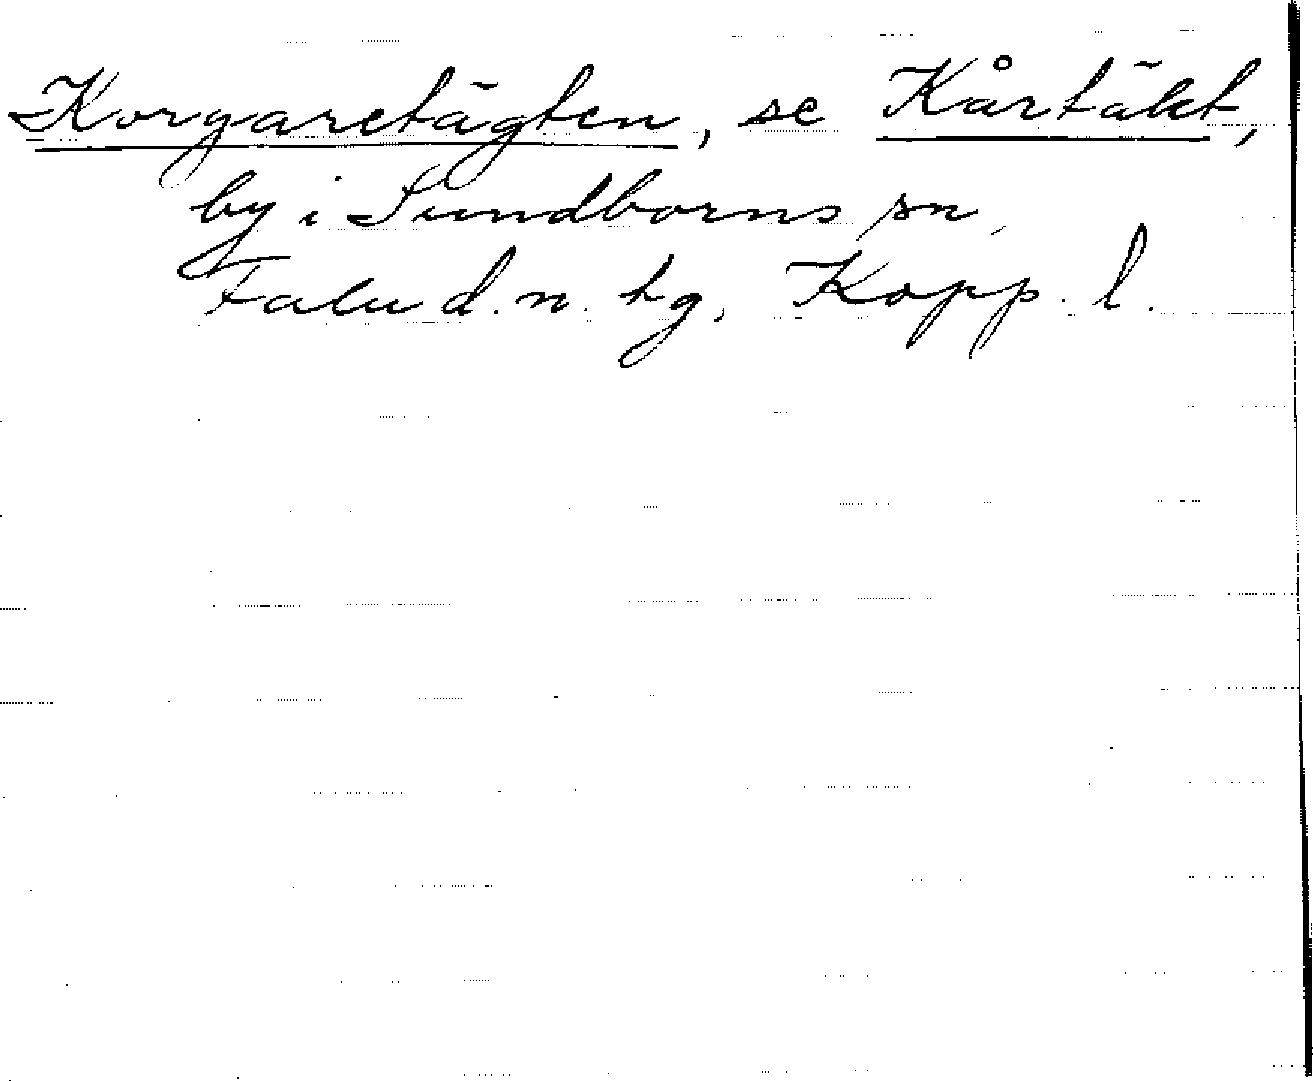 Korgaretägten, se Kårtäkt,
by i Sundborns sn,
Falu d. n. hg, Kopp. l.